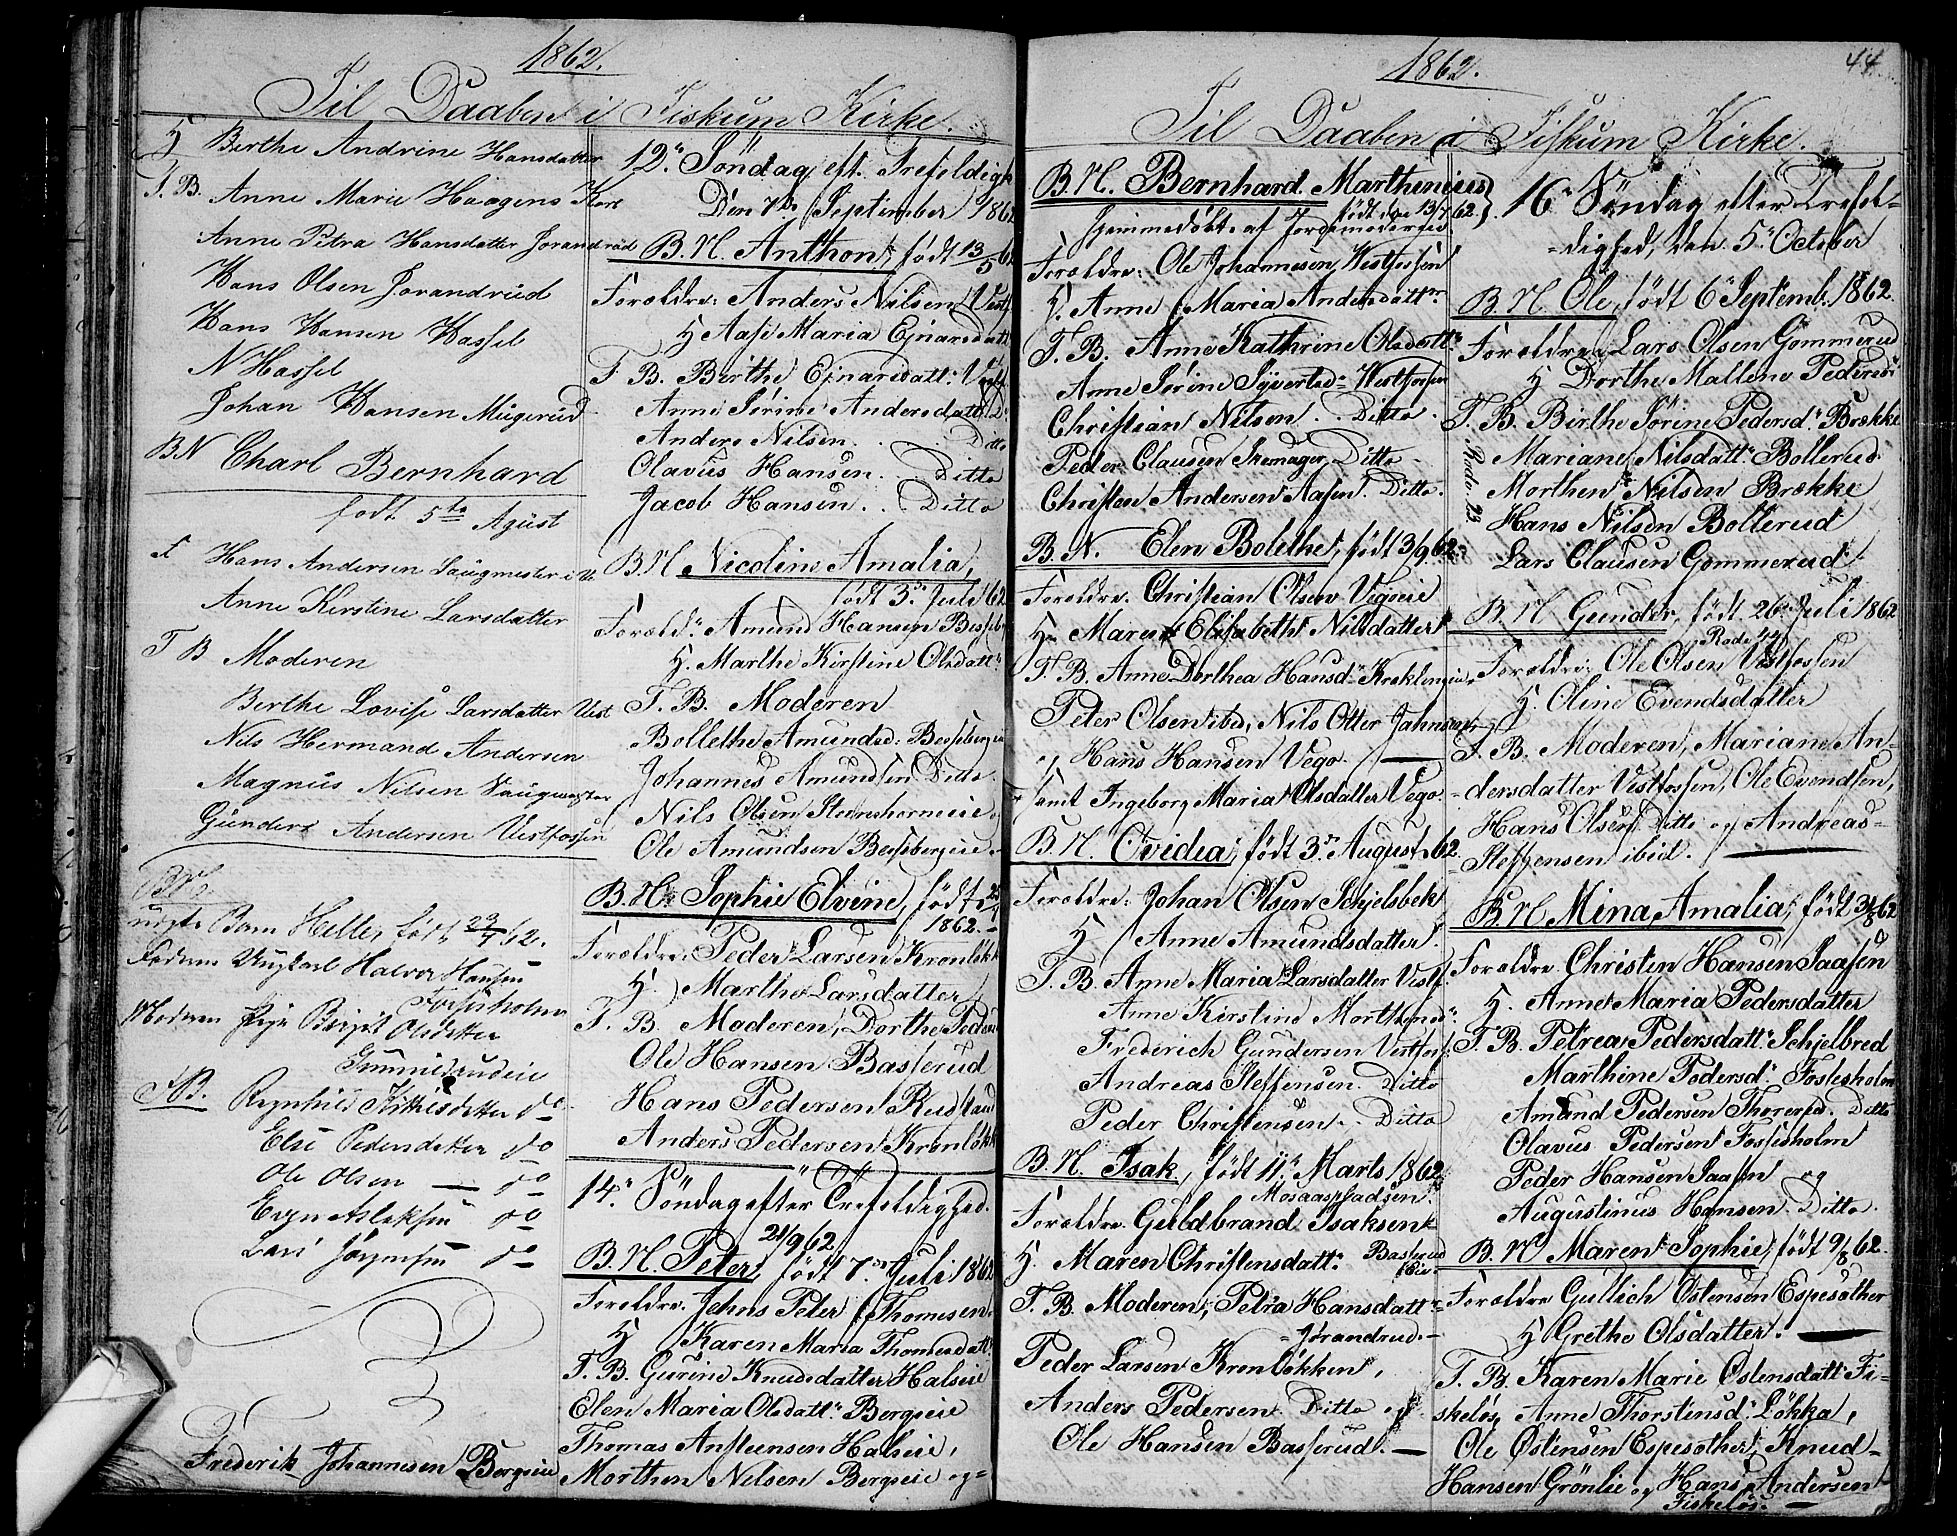 1862.
Til Daaben i Fiskum Kirke.
H Berthe Andrine Hansdatter
F. B. Anne Marie Haagens
Anne Petra Hansdatter Jorandrud
Hans Olsen Jorandrud
Hans Hansen Hassel
N Hassel
Johan Hansen Mügerud
BN Charl Bernhard
født 5te Agüst
F Hans Andersen Saügmester i V
Anne Kirstine Larsdatter
F B Moderen
Berthe Lovise Larsdatter Vest
Nils Hermand Andersen
Magnus Nilsen Saugmester
Günder Andersen Vestfossen
BN
uægte Barn Helle, født 23/7 62.
Faderen Ungkarl Halvor Hansen
Fossesholm
Moderen Pige Birgit Olsdatter
FB. Ragnhild do
Else Pedersdatter do
Ole Olsen — do
Even Aslaksen do
Lars Jørgensen do
Frederik Johannesen Bergseie
12te Søndag eft. Trefoldigh
Den 7de September 1862
B. N. Anthon, født 13/5 62
Forældre: Anders Nilsen Vestf
H Aase Maria Ejnarsdatt
F B. Birthe Ejnarsdatt: Vestf
Anne Sørine Andersdatt D:
Anders Nilsen . . Ditto
Olavus Hansen . Ditto
Jacob Hansen . . Ditto
B N Nicoline Amalia,
født 3de Juli 62
Foræld: Amund Hansen Besseb
H. Marthe Kirstine Olsdatt:
F. B. Moderen
Bollethe Amundsd: Bessebergeie
Johannes Amundsen Ditto.
Nils Olsen Steenshorneeie og
Ole Amundsen Bessebergeie.
B. N. Sophie Elvine, født
1862.
Forældre: Peder Larsen Kronløkk
H. Marthe Larsdatter
F. B. Moderen, Dorthe Peders
Ole Hansen Basserud
Hans Pedersen Rudstaul
Anders Pedersen Kronløkk
14de Søndag efter Trefoldighed.
21/9 62
B. N. Peter, født 7de Juli 1862
Forældre: Jehns Peter Thomesen
H Karen Maria Thomesdatt
F. B. Gurine Knudsdatter Halseie
Elen Maria Olsdatt: Bergseie
Thomas Ansteensen Halseie,
Morthen Nilsen Bergseie og
1862.
44
Til Daaben i Fiskum Kirke.
B. N. Bernhard Marthenius
født den 13/7 62.
hjemmedøbt af Jordemoderen
Forældre: Ole Johannesen Vestfossen
H. Anne Maria Andersdatter
F. B. Anne Kathrine Olsdatt:
Anne Sørine Syvertsd: Westfossen
Christian Nilsen . . Ditto.
Peder Clausen Skomager Ditto
Christen Andersen Aasen. Ditto.
B. N. Elen Bolethe, født 3/9 62
Forældre: Christian Olsen Vegoeie
H. Maren Elisabeth Nilsdatter
F. B. Anne Dorthea Hansd: Kreklingeie
Peter Olsen ibid, Nils Otter
og Hans Hansen Vego. —
samt Ingeborg Maria Olsdatter Vego.
B. N. Ovidia, født 3de August 62
Forældre: Johan Olsen Schjelsbek
H Anne Amundsdatter.
F. B. Anne Maria Larsdatter Vestf.
Anne Kirstine Morthensd:
Frederich Gundersen Vestfoss:
Andreas Steffensen. Ditto
Peder Christensen. Ditto
B. N. Isak, født 11te Marts 1862
Forældre. Guldbrand Isaksen
H. Maren Christensdatt: Basserud Eie.
F. B. Moderen, Petra Hansdatt:
Jørandrud.
Peder Larsen Kronløkken,
Anders Pedersen Ditto og
Ole Hansen Basserud. —
16de Søndag efter Trefol-
dighed, den 5te October
B. N Ole, født 6te Septemb. 1862.
Forældre: Lars Olsen Gommerud
H Dorthe Mallene Pedersd
F. B. Birthe Sørine Pedersd: Brække
Mariane Nilsdatt: Bollerud
Morthen Nilsen Brække
Hans Nilsen Bollerud
Lars Clausen Gommerud
Rode. 23.
B. N. Gunder, født. 26de Juli 1862
Rode 44
Forældre: Ole Olsen Vestfossen
H. Oline Evendsdatter
F. B. Moderen, Mariane An-
dersdatter Vestfossen, Ole Evendsen,
Hans Olsen Ditto og Andreas
Steffensen ibid. —
B. N Mina Amalia, født 31/8 62
Forældre Christen Hansen Saasen
H. Anne Maria Pedersdatter
F. B. Petrea Pedersdatt: Schjelbred
Marthine Pedersd: Fossesholm
Amund Pedersen Thorerud. Ditto
Olavus Pedersen Fossesholm
Peder Hansen Saasen og
Augustinus Hansen. Ditto.
B. N Maren Sophie, født 9/8 62.
Forældre Gullich Østensen Espesæther
H Grethe Olsdatter. —
F. B. Karen Marie Østensdatt: Fi-
skeløs, Anne Thorstensd: Løkka,
Ole Østensen Espesæther, Knud
Hansen Grønlie og Hans Andersen
Fiskeløs. —